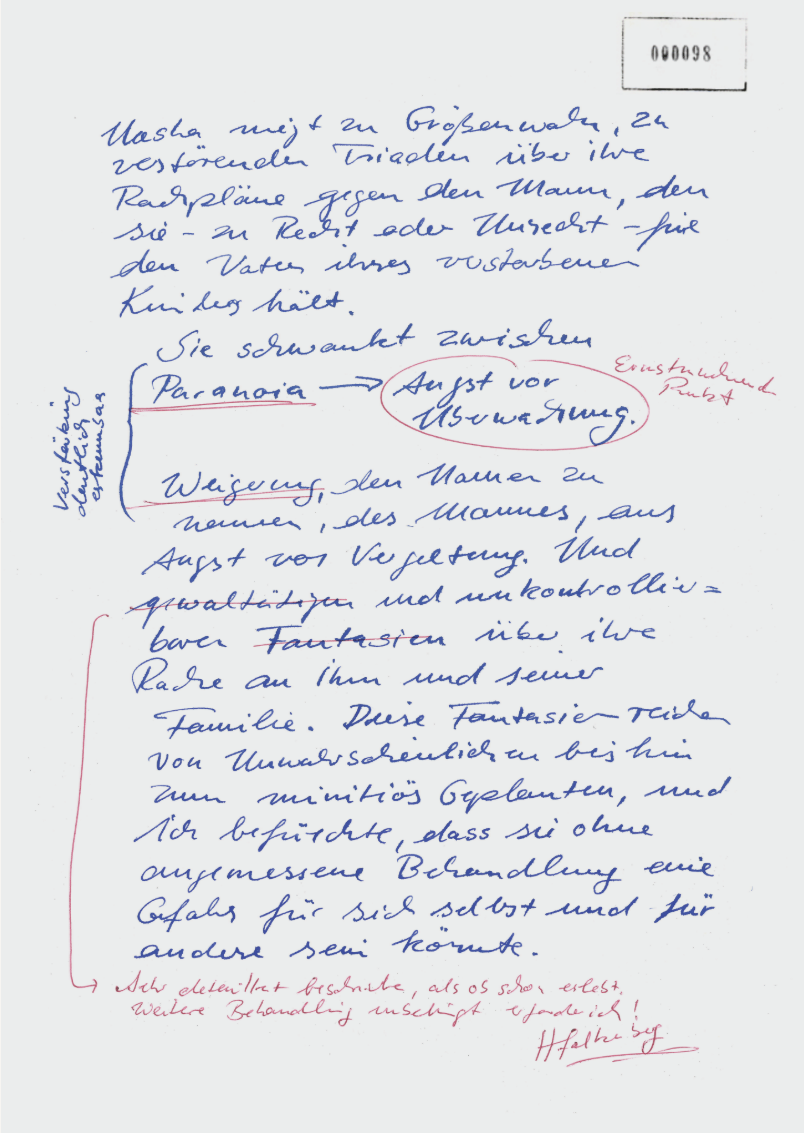 000098
Masha neigt zu Größenwahn, zu
verstörenden Triaden über ihre
Rachpläne gegen den Mann, den
sie – zu Recht oder Unrecht – für
den Vater ihres verstorbenen
Kindes hält.
Sie schwankt zwischen
Paranoia → Angst vor
Überwachung.
Ernstnehmend
Punkt
Verstärkung
deutlich
erkennbar
Weigerung, den Namen zu
nennen, des Mannes, aus
Angst vor Vergeltung. Und
gewalttätigen und unkontrollier=
baren Fantasien über ihre
Rache an ihm und seiner
Familie. Diese Fantasien reichen
von Unwahrscheinlichen bis hin
zum minitiös Geplanten, und
ich befürchte, dass sie ohne
angemessene Behandlung eine
Gefahr für sich selbst und für
andere sein könnte.
Sehr detailliert beschrieben, als ob schon erlebt.
Weitere Behandlung unbedingt erforderlich!